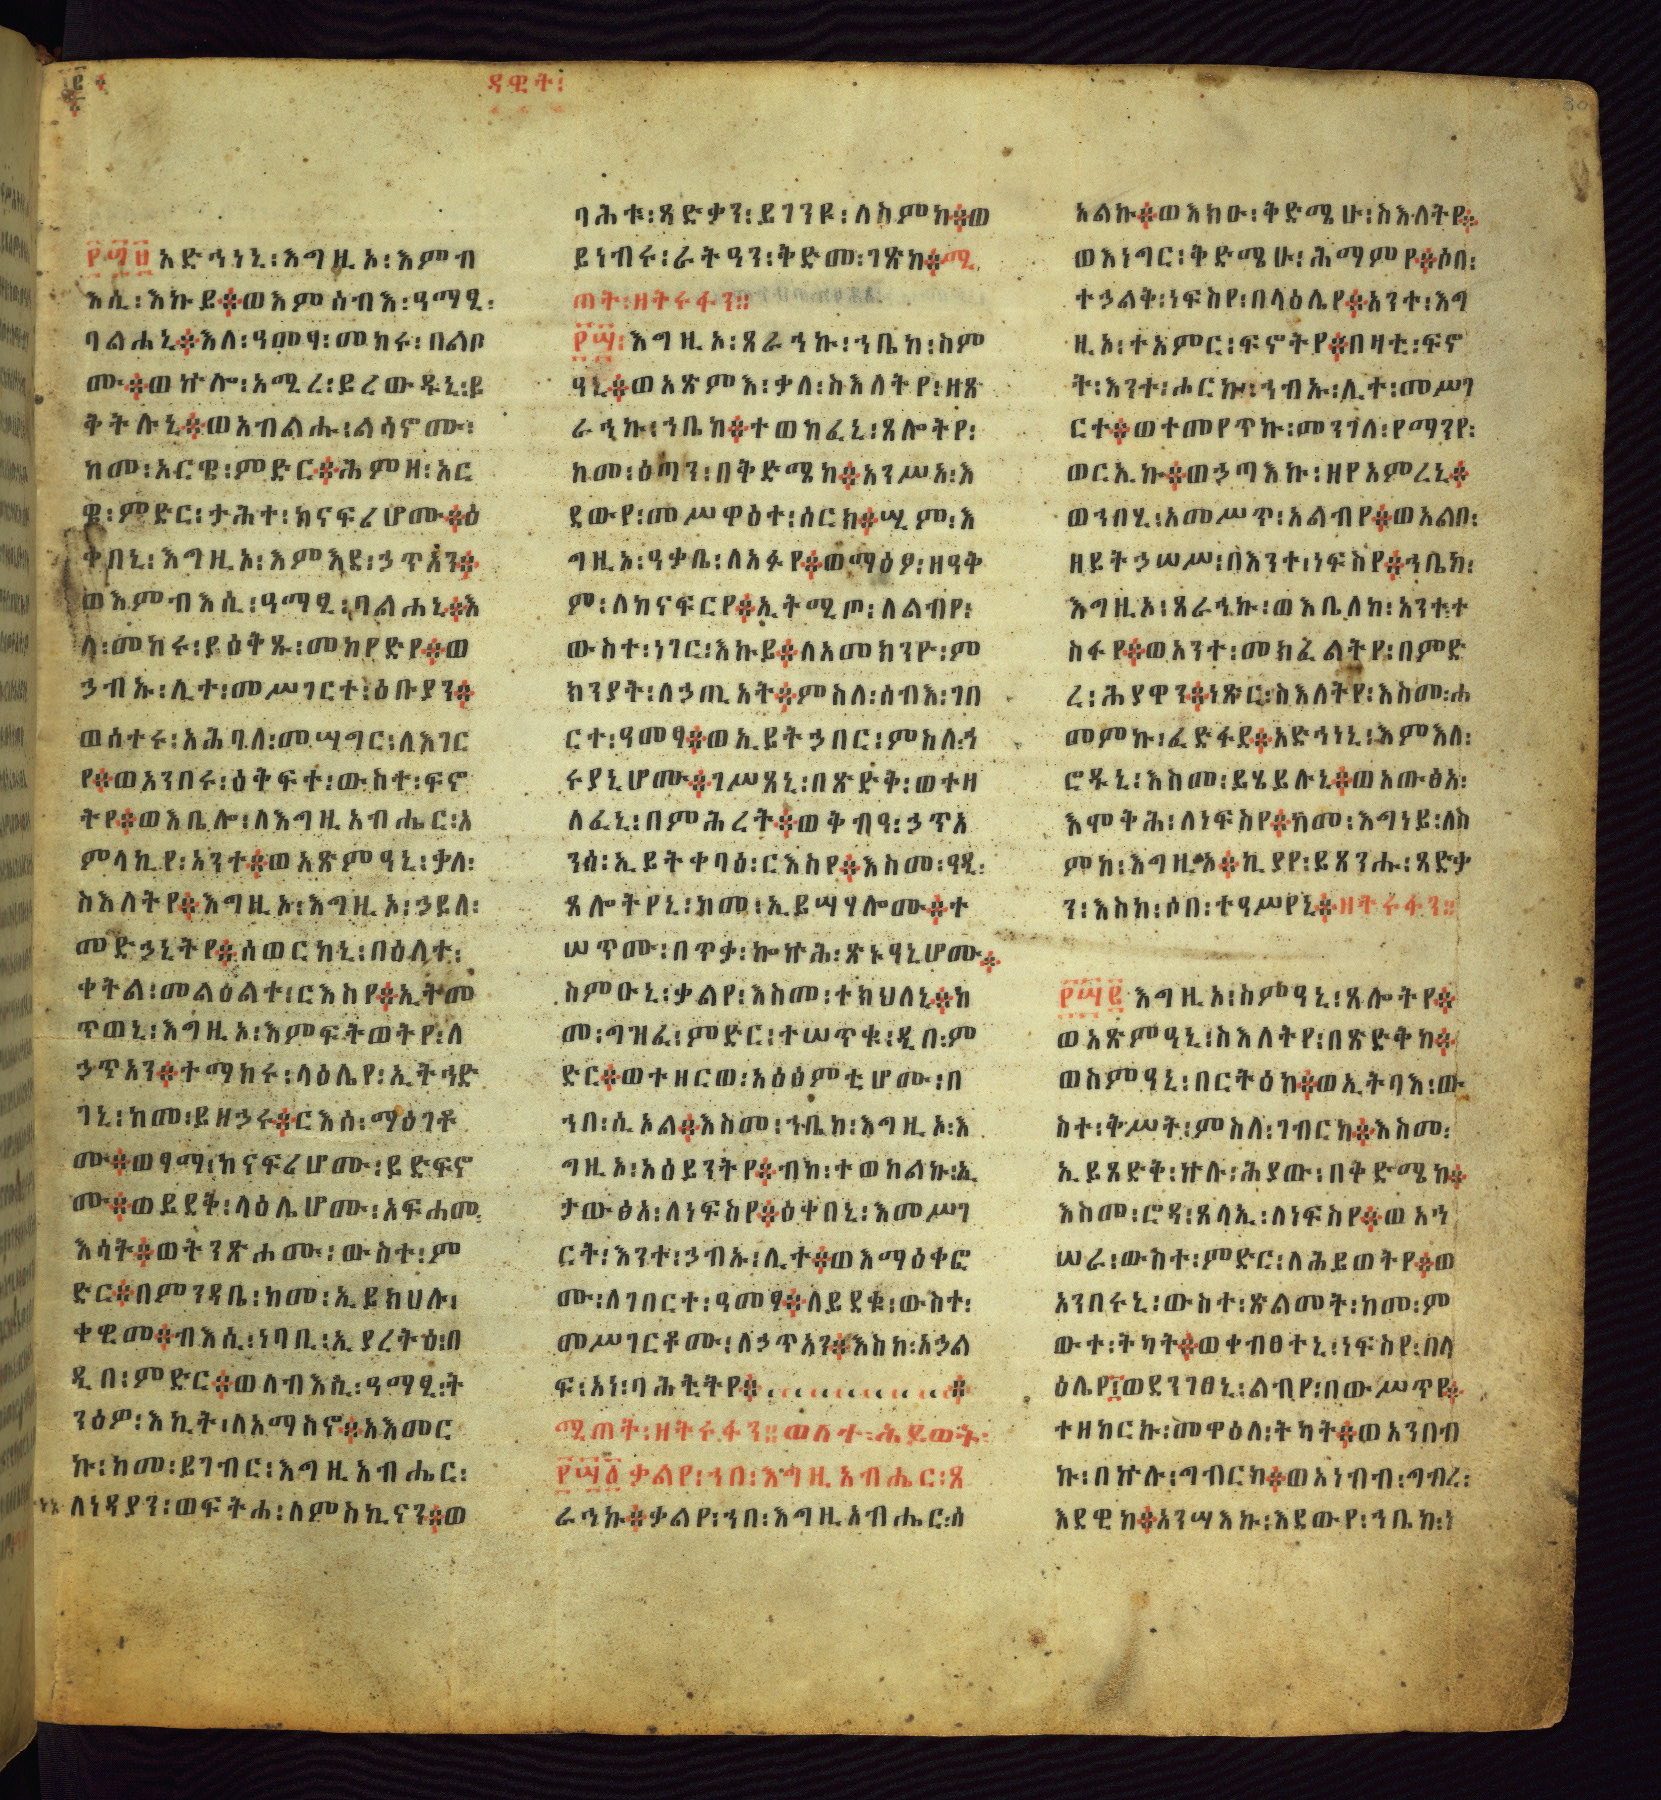 ፪
ዳዊት፡
30
፻፴፱ አድኅነኒ፡እግዚኦ፡እምብ
እሲ፡እኩይ፨ወእምሰብእ፡ዓማፂ፡
ባልሐኒ፨እለ፡ዓመፃ፡መከሩ፡በልቦ
ሙ፨ወኵሎ፡አሚረ፡ይረውዱኒ፡ይ
ቅትሉኒ፨ወአብልሑ፡ልሳኖሙ፡
ከመ፡አርዌ፡ምድር፨ሕምዘ፡አር
ዌ፡ምድር፡ታሕተ፡ከናፍሪሆሙ፨ዕ
ቀበኒ፡እግዚኦ፡እምእደ፡ኃጥአን፨
ወእምብእሲ፡ዓማፂ፡ባልሐኒ፨እ
ለ፡መከሩ፡ይዕቅጹ፡መከየድየ፨ወ
ኃብኡ፡ሊተ፡መሥገርተ፡ዕቡያን፨
ወሰተሩ፡አሕባለ፡መሣግር፡ለእገር
የ፨ወአንበሩ፡ዕቅፍተ፡ውስተ፡ፍኖ
ትየ፨ወእቤሎ፡ለእግዚአብሔር፡አ
ምላኪየ፡አንተ፨ወአጽምዓኒ፡ቃለ፡
ስእለትየ፨እግዚኦ፡እግዚኦ፡ኃይለ፡
መድኃኒትየ፨ሰወርከኒ፡በዕለተ፡
ቀትል፡መልዕልተ፡ርእስየ፨ኢትመ
ጥወኒ፡እግዚኦ፡እምፍትወትየ፡ለ
ኃጥአን፨ተማከሩ፡ላዕሌየ፡ኢትኅድ
ገኒ፡ከመ፡ይዘኃሩ፨ርእሰ፡ማዕገቶ
ሙ፨ወፃማ፡ከናፍሪሆሙ፡ይድፍኖ
ሙ፨ወይደቅ፡ላዕሌሆሙ፡አፍሐመ፡
እሳት፨ወትንጽሖሙ፡ውስተ፡ም
ድር፨በምንዳቤ፡ከመ፡ኢይክሀሉ፡
ቀዊመ፨ብእሲ፡ነባቢ፡ኢያረትዕ፡በ
ዲበ፡ምድር፨ወለብእሲ፡ዓማፂ፡ት
ንዕዎ፡እኪት፡ለአማስኖ፨አእመር
ኩ፡ከመ፡ይገብር፡እግዚአብሔር፡
ለነዳያን፡ወፍትሐ፡ለምስኪናን፨ወ
ባሕቱ፡ጻድቃን፡ይገንዩ፡ለስምከ፨ወ
ይነብሩ፡ራትዓን፡ቅድመ፡ገጽከ፨ሚ
ጠት፡ዘትሩፋን።
፻፵፡እግዚኦ፡ጸራኅኩ፡ኀቤከ፡ስም
ዓኒ፨ወአጽምእ፡ቃለ፡ስእለትየ፡ዘጸ
ራኅኩ፡ኀቤከ፨ተወከፈኒ፡ጸሎትየ፡
ከመ፡ዕጣን፡በቅድሜከ፨አንሥአ፡እ
ደውየ፡መሥዋዕተ፡ሰርክ፨ሢም፡እ
ግዚኦ፡ዓቃቤ፡ለአፉየ፨ወማዕፆ፡ዘዓቅ
ም፡ለከናፍርየ፨ኢትሚጦ፡ለልብየ፡
ውስተ፡ነገር፡እኩይ፨ለአመክንዮ፡ም
ክንያት፡ለኃጢአት፨ምስለ፡ሰብእ፡ገበ
ርተ፡ዓመፃ፨ወኢይትኃበር፡ምስለ፡ኅ
ሩያኒሆሙ፨ገሥጸኒ፡በጽድቅ፡ወተዛ
ለፈኒ፡በምሕረት፨ወቅብዓ፡ኃጥአ
ንሰ፡ኢይትቀባዕ፡ርእስየ፨እስመ፡ዓዲ፡
ጸሎትየኒ፡ከመ፡ኢይሣሃሎሙ፨ተ
ሠጥሙ፡በጥቃ፡ኰኵሕ፡ጽኑዓኒሆሙ፨
ስምዑኒ፡ቃልየ፡እስመ፡ተክህለኒ፨ከ
መ፡ግዝፈ፡ምድር፡ተሠጥቁ፡ዲበ፡ም
ድር፨ወተዘርወ፡አዕፅምቲሆሙ፡በ
ኀበ፡ሲኦል፨እስመ፡ኀቤከ፡እግዚኦ፡እ
ግዚኦ፡አዕይንትየ፨ብከ፡ተወከልኩ፡ኢ
ታውፅአ፡ለነፍስየ፨ዕቀበኒ፡እመሥገ
ርት፡እንተ፡ኃብኡ፡ሊተ፨ወእማዕቀፎ
ሙ፡ለገበርተ፡ዓመፃ፨ለይደቁ፡ውስተ፡
መሥገርቶሙ፡ለኃጥአን፨እስከ፡አኃል
ፍ፡አነ፡ባሕቲትየ፨
ሚጠት፡ዘትሩፋን።ወለተ፡ሕይወት፡
፻፵፩ ቃልየ፡ኀበ፡እግዚአብሔር፡ጸ
ራኅኩ፨ቃልየ፡ኀበ፡እግዚአብሔር፡ሰ
አልኩ፨ወእክዑ፡ቅድሜሁ፡ስእለትየ፨
ወእነግር፡ቅድሜሁ፡ሕማምየ፨ሶበ፡
ተኃልቅ፡ነፍስየ፡በላዕሌየ፨አንተ፡እግ
ዚኦ፡ተአምር፡ፍኖትየ፨በዛቲ፡ፍኖ
ት፡እንተ፡ሖርኩ፡ኀብኡ፡ሊተ፡መሥገ
ርተ፨ወተመየጥኩ፡መንገለ፡የማንየ፡
ወርኢኩ፨ወኃጣእኩ፡ዘየአምረኒ፨
ወኀበሂ፡አመሥጥ፡አልብየ፨ወአልቦ፡
ዘይትኃሠሥ፡በእንተ፡ነፍስየ፨ኀቤከ፡
እግዚኦ፡ጸራኅኩ፡ወእቤለከ፡አንተ፡ተ
ስፋየ፨ወአንተ፡መክፈልትየ፡በምድ
ረ፡ሕያዋን፨ነጽር፡ስእለትየ፡እስመ፡ሐ
መምኩ፡ፈድፋደ፨አድኅነኒ፡እምእለ፡
ሮዱኒ፡እስመ፡ይሄይሉኒ፨ወአውፅአ፡
እሞቅሕ፡ለነፍስየ፨ከመ፡እግነይ፡ለስ
ምከ፡እግዚኦ፨ኪያየ፡ይጸንሑ፡ጻድቃ
ን፡እስከ፡ሶበ፡ተዓሥየኒ፨ዘትሩፋን።
፻፵፪ እግዚኦ፡ስምዓኒ፡ጸሎትየ፨
ወአጽምዓኒ፡ስእለትየ፡በጽድቅከ፨
ወስምዓኒ፡በርትዕከ፨ወኢትባእ፡ው
ስተ፡ቅሥት፡ምስለ፡ገብርከ፨እስመ፡
ኢይጸድቅ፡ኵሉ፡ሕያው፡በቅድሜከ፨
እስመ፡ሮዳ፡ጸላኢ፡ለነፍስየ፨ወአኅ
ሠራ፡ውስተ፡ምድር፡ለሕይወትየ፨ወ
አንበሩኒ፡ውስተ፡ጽልመት፡ከመ፡ም
ውተ፡ትካት፨ወቀብፀተኒ፡ነፍስየ፡በላ
ዕሌየ፤ወደንገፀኒ፡ልብየ፡በውሥጥየ፨
ተዘከርኩ፡መዋዕለ፡ትካት፨ወአንበብ
ኩ፡በኵሉ፡ግብርከ፨ወአነብብ፡ግብረ፡
እደዊከ፨አንሣእኩ፡እደውየ፡ኀቤከ፡ነ